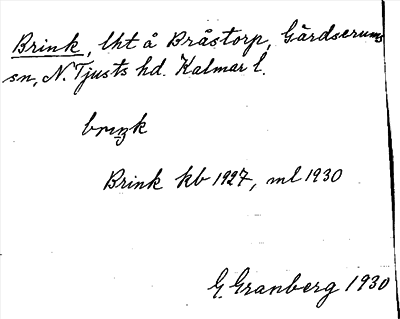 Brink, lht å Bråstorp, Gärdserums
sn, N. Tjusts hd. Kalmar l.
brıŋk
Brink kb 1927, ml 1930
G. Granberg 1930